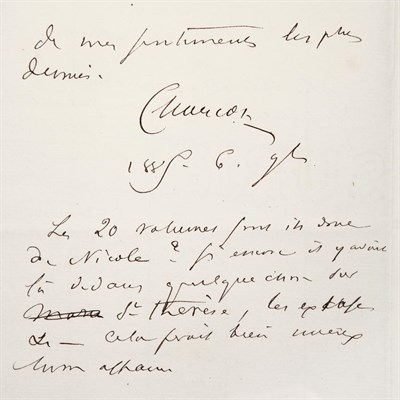 de mes sentiments les plus
devoués.
Charcot
1885 - 6. 9b
Les 20 volumes sont ils donc
de Nicole? Si encore il y avait
là dedans quelque chose sur
Ste Thérèse, les extases
&c — cela ferait bien mieux
affaire